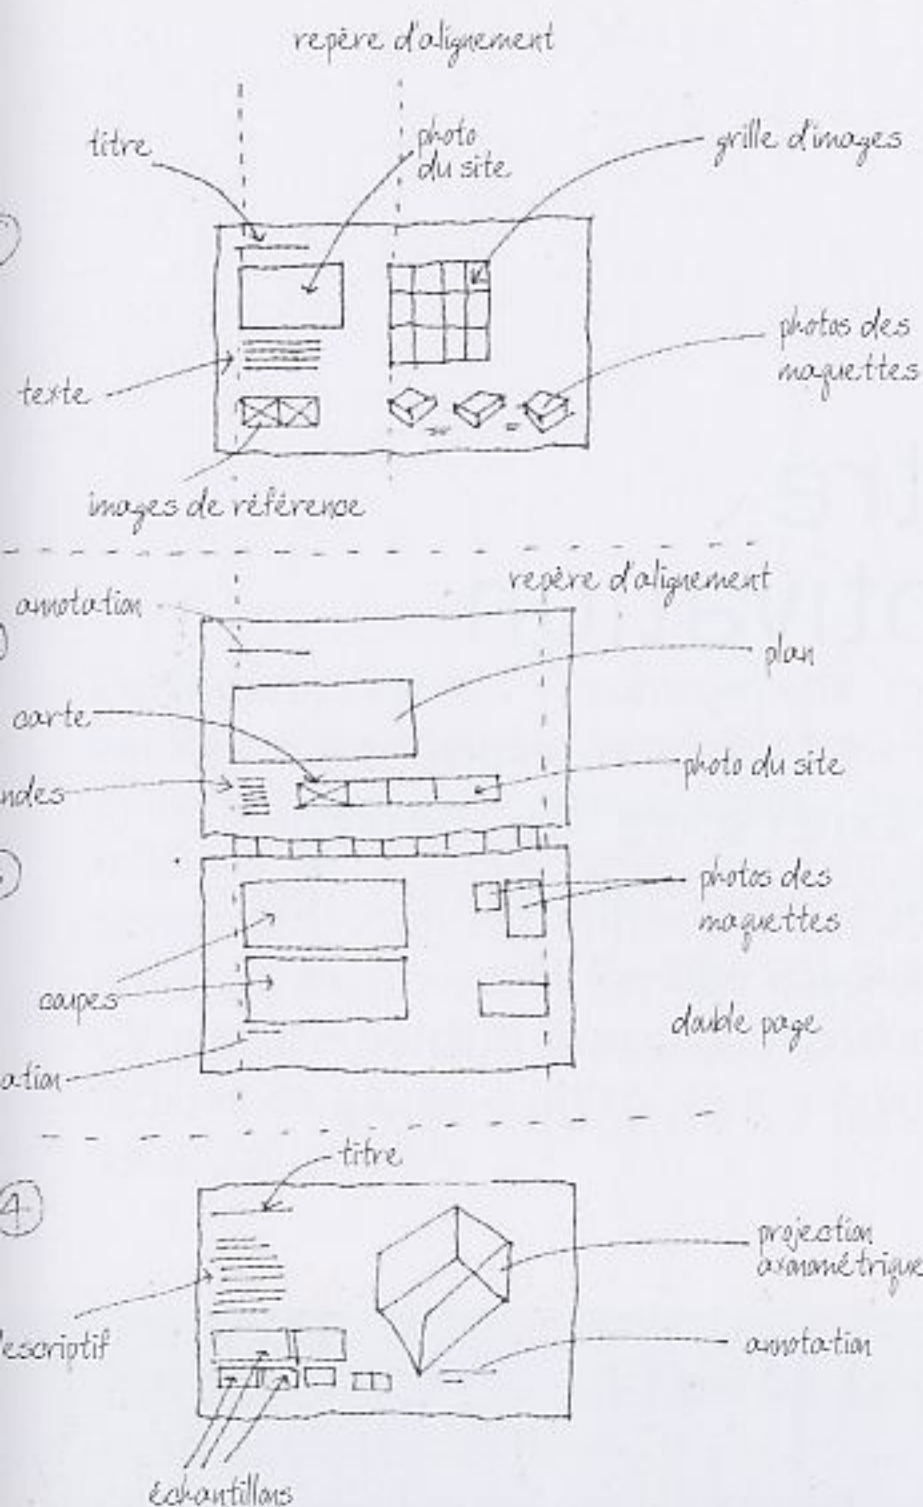 repère d'alignement
titre
photo
du site
grille d'images
photos des
maquettes
texte
images de référence
annotation
repère d'alignement
plan
carte
photo du site
ndes
photos des
maquettes
coupes
double page
ation
titre
4
projection
axonométrique
escriptif
annotation
échantillons